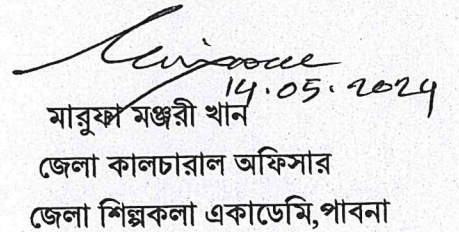 14.05.2024
মারুফা মঞ্জুরী খান
জেলা কালচারাল অফিসার
জেলা শিল্পকলা একাডেমি,পাবনা